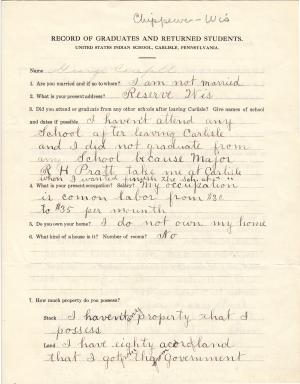 Chippewa - Wis
RECORD OF GRADUATES AND RETURNED STUDENTS.
UNITED STATES INDIAN SCHOOL, CARLISLE, PENNSYLVANIA.
Name George
1. Are you married and if so to whom? I am not married
2. What is your present address? Reserve Wis
3. Did you attend or graduate from any other schools after leaving Carlisle? Give names of school
and dates if possible. I haven't attend any
School after leaving Carlisle
and I did not graduate from
any School because Major
R H Pratt take me at Carlisle
when I want finish the school
4. What is your present occupation? Salary? My occupation
is comon labor from $30
to $35 per mounth
5. Do you own your home? I do not own my home
6. What kind of a house is it? Number of rooms? No
7. How much property do you possess?
Stock I haven't any property that I
possess
Land I have eighty acord land
that I got from the Government